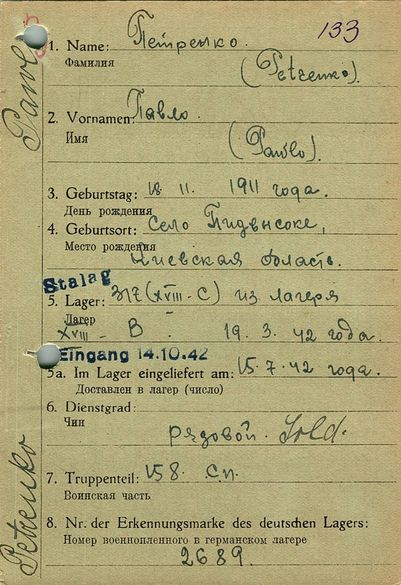 133
1. Name: Петренко.
Фамилия
(Petrenko).
2. Vornamen: Павло.
Имя
(Pawlo).
3. Geburtstag: 18. 11. 1911 года.
День рождения
4. Geburtsort: Село Підвисоке,
Место рождения
Киевская область.
Stalag
5. Lager: 317 (XVIII - C) из лагеря
Лагер
XVIII - B 19. 3. 42 года.
Eingang 14.10.42
5a. Im Lager eingeliefert am: 15. 7. 42 года.
Доставлен в лагер (число)
6. Dienstgrad:
Чин
рядовой. Sold.
7. Truppenteil: 158. с.п.
Воинская часть
8. Nr. der Erkennungsmarke des deutschen Lagers:
Номер военнопленного в германском лагере
2689.
Petrenko
Pawlo